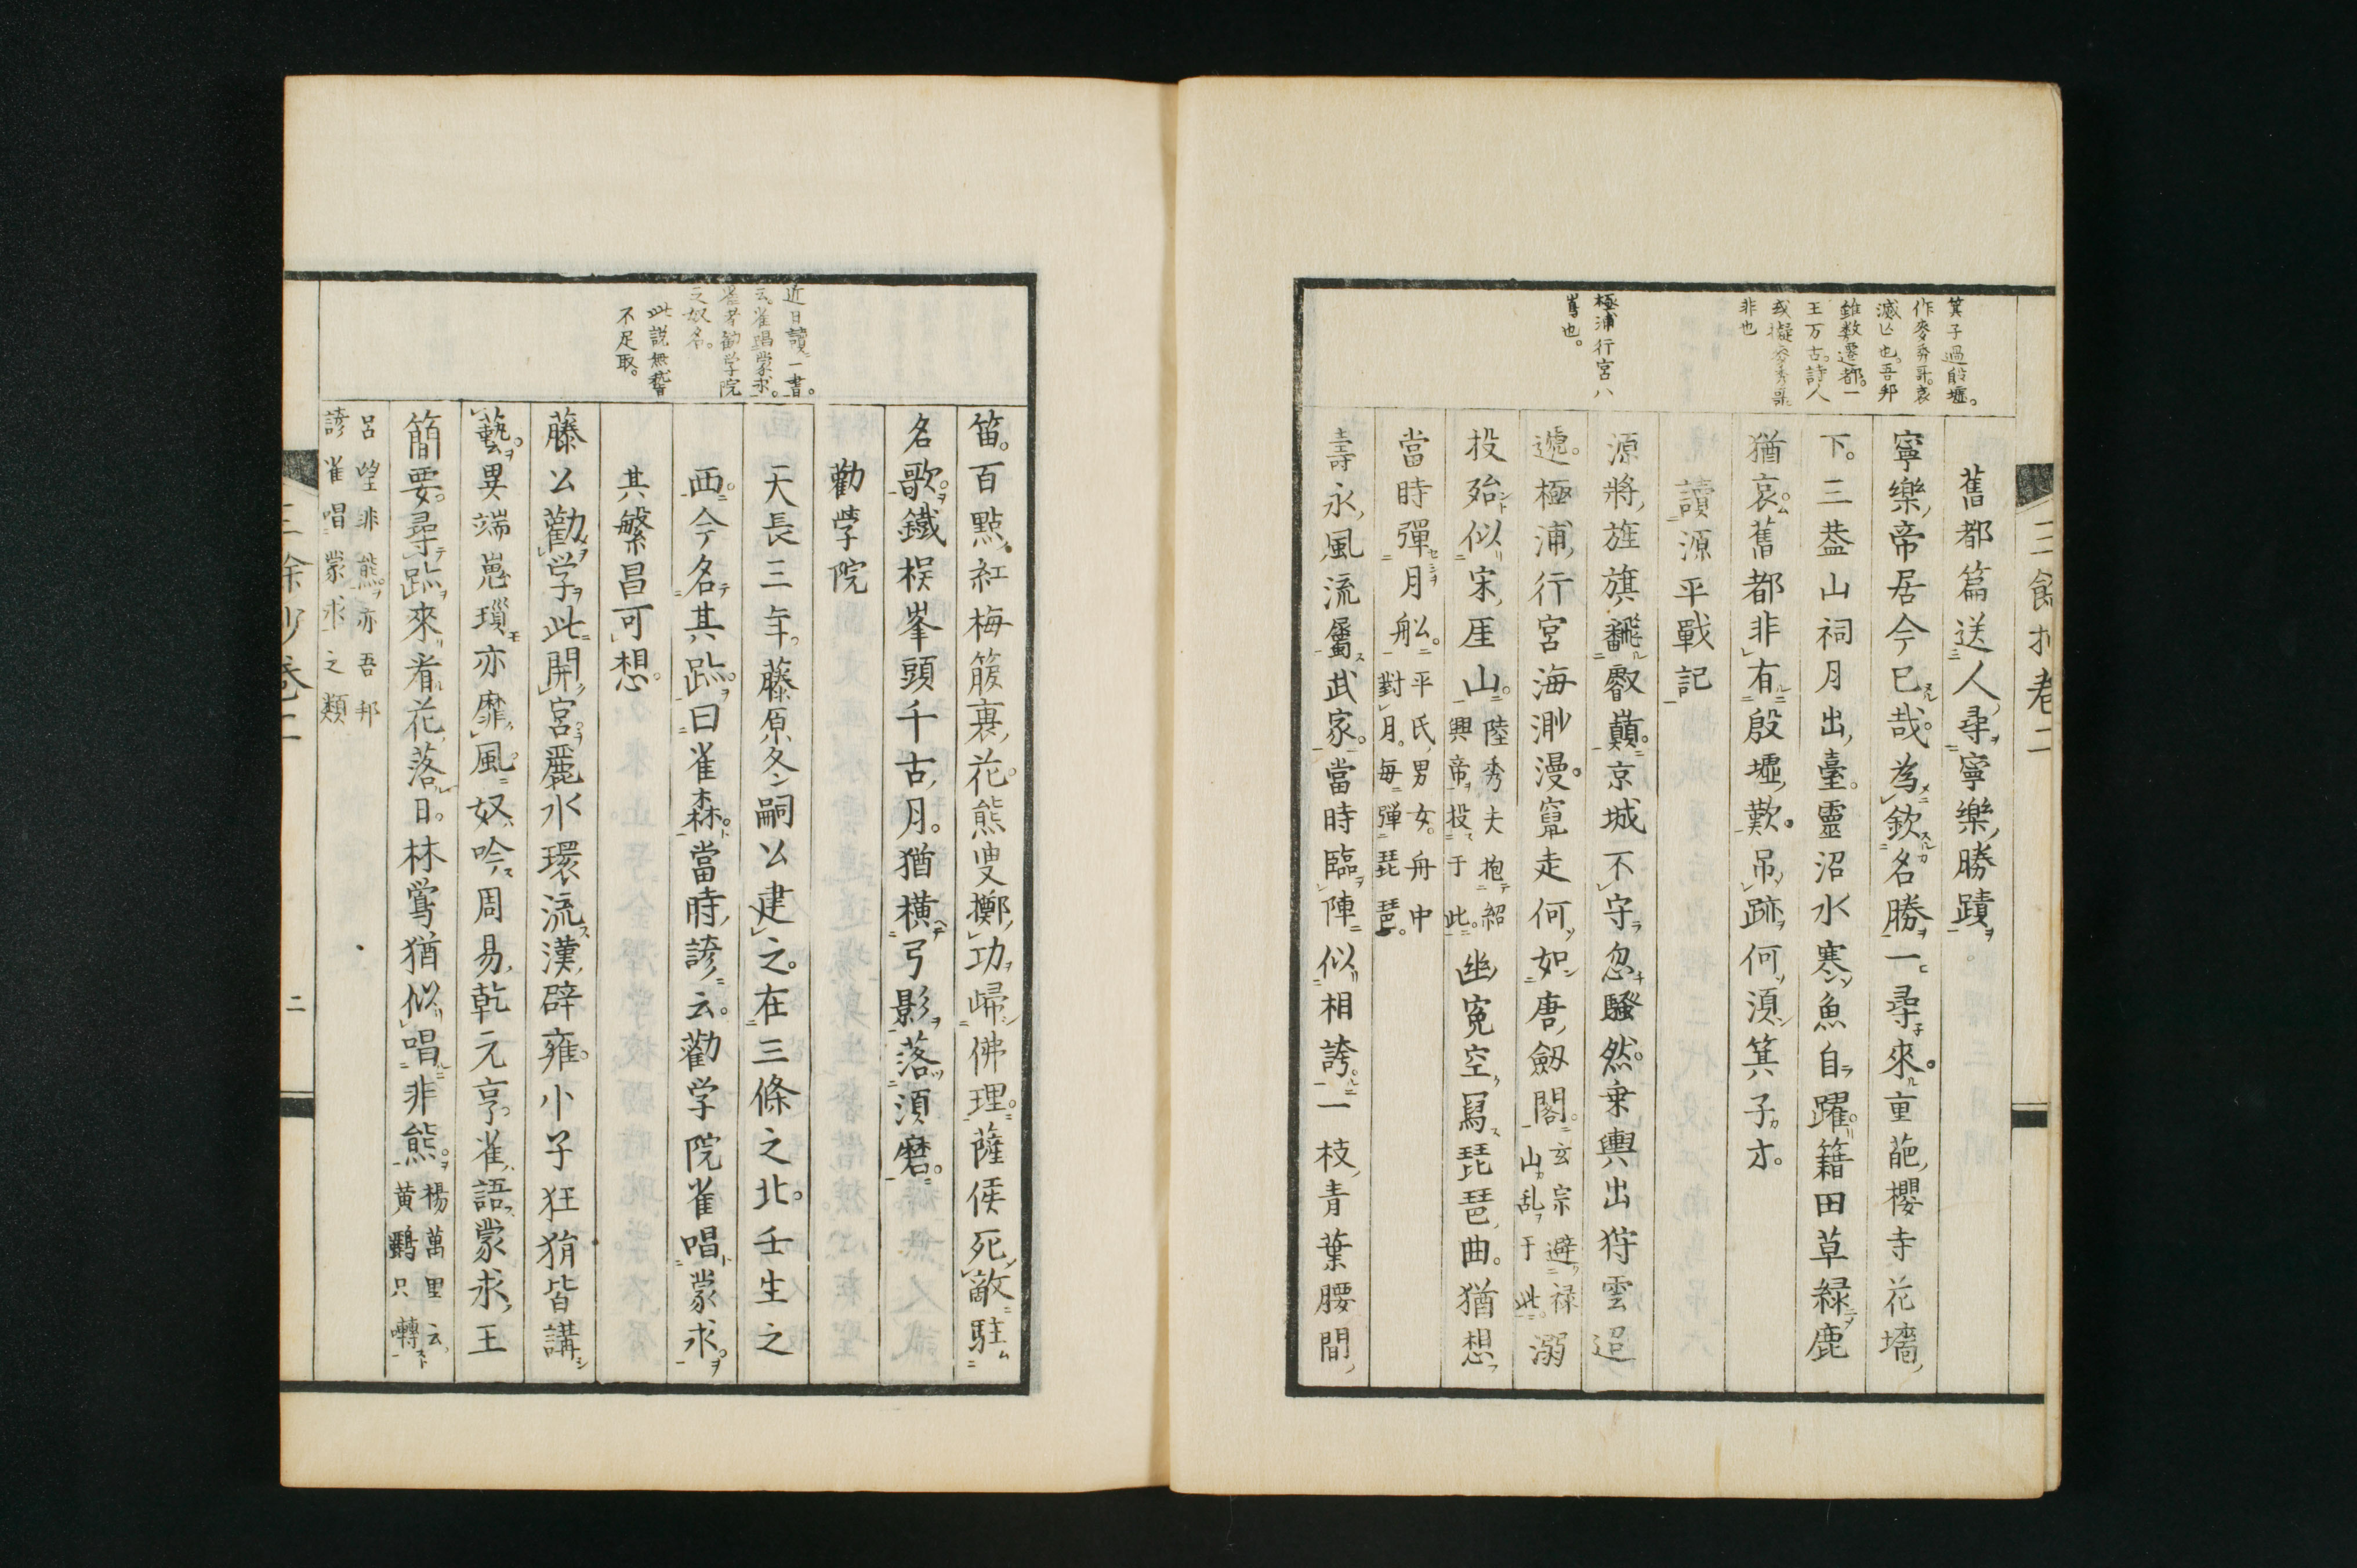 箕子過殷墟。
作麥秀哥。哀
滅亾也。吾邦
雖数遷都。一
王万古。詩人
或擬麥秀哥
非也
極浦行宮八
嶌也。
三餘抄卷二
舊都篇送人尋寧樂勝蹟
寧樂帝居今已哉。為欽名勝一尋來。重葩櫻寺花墻
下。三葢山祠月出臺。靈沼水寒魚自躍。籍田草緑鹿
猶哀。舊都非有殷墟歎。吊跡何須箕子才。
讀源平戰記
源將旌旗飜叡巔。京城不守忽騷然。乗輿出狩雲迢
遞。極浦行宮海渺漫。竄走何如唐劔閣。玄宗避禄山乱于此。溺
投殆似宋厓山。陸秀夫抱紹興帝投于此。幽寃空冩琵琶曲。猶想
當時彈月舩。平氏男女。舟中對月。毎彈琵琶。
壽永風流屬武家。當時臨陣似相誇。一枝青葉腰間
近日讀一書。
云。雀唱蒙求。
雀者勧学院
之奴名。
此説無稽
不足取。
笛。百點紅梅箙裏花。熊叟擲功歸佛理。薩侯死敵駐
名歌。鐵楑峯頭千古月。猶横弓影落須磨。
勸学院
天長三年。藤原冬嗣公建之。在三條之北。壬生之
西。今名其趾。曰雀森。當時諺云。勸学院雀唱蒙求。
其繁昌可想。
藤公勸学此開宮。麗水環流漢辟雍。小子狂狷皆講
藝。異端崽瑣亦靡風。奴吟周易乾元亨。雀語蒙求王
簡要。尋趾來看花落日。林鶯猶似唱非熊。楊萬里云。黄鸝只囀
呂望非熊。亦吾邦
諺雀唱蒙求之類
三餘抄卷二
二